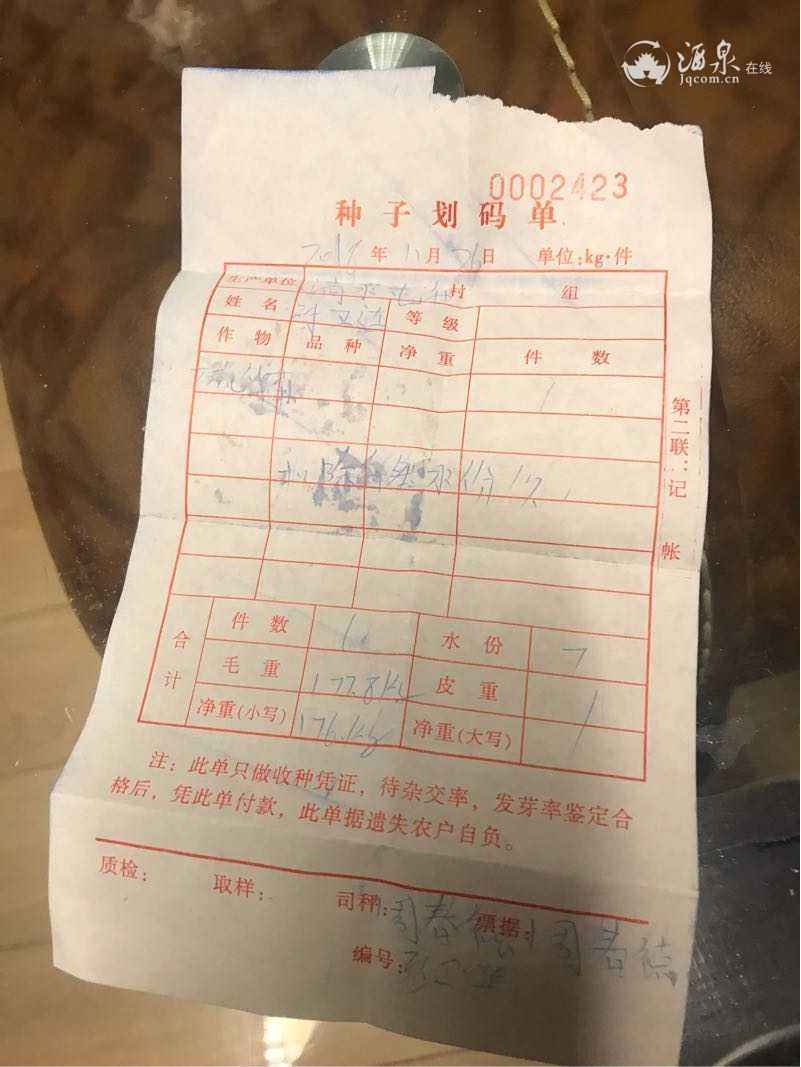 酒泉在线
Jqcom.cn
0002423
种子划码单
年 11 月 26 日 单位:kg·件
生产单位 村 组
姓名 等级
作物 品种 净重 件数
1
扣除 水份
第二联:记帐
合计
件数 1 水份 7
毛重 177.8kg 皮重 1
净重(小写) 176.1kg 净重(大写)
注:此单只做收种凭证,待杂交率,发芽率鉴定合
格后,凭此单付款,此单据遗失农户自负。
质检: 取样: 司秤:周春德 票据:周春德
编号: